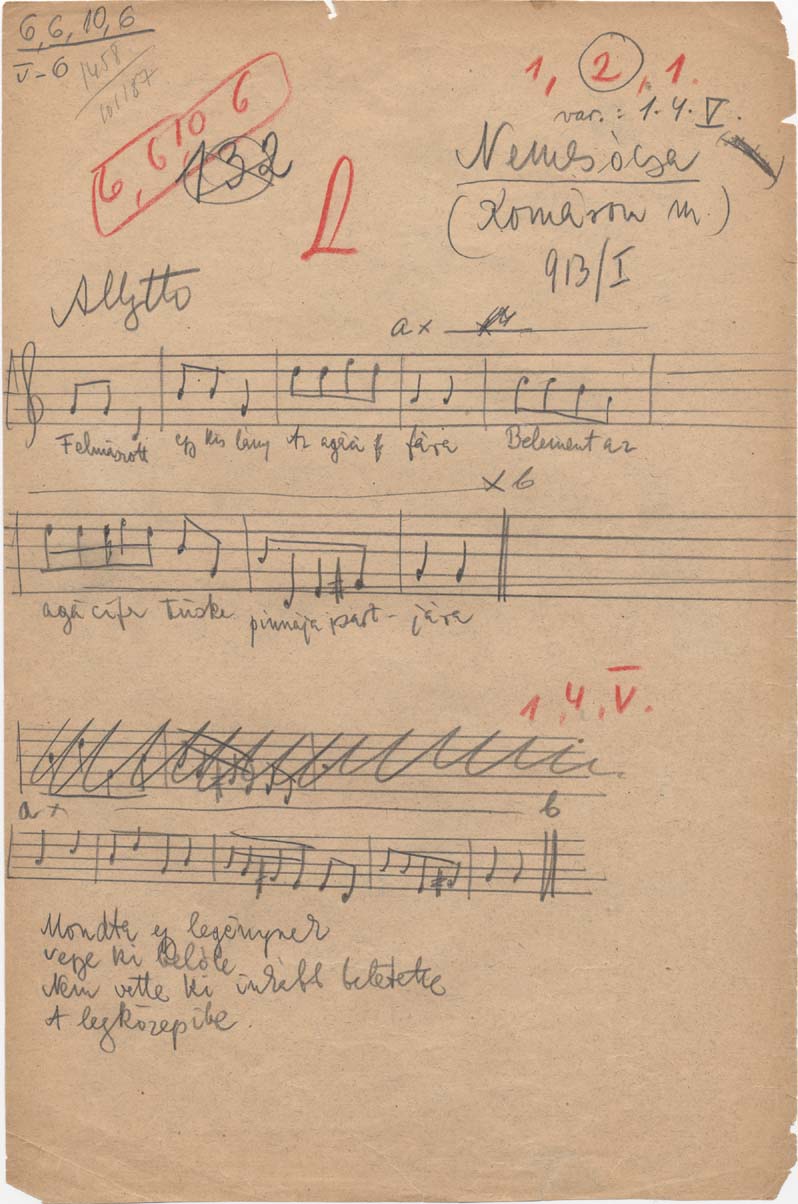 6, 6, 10, 6
V-6
1458
101/87
6, 6, 10 6
132
1, 2, 1.
var. : 1. 4. V.
Nemesócsa
(Komárom m.)
913/I
Allgtto
a x
Felmászott egy kis lány Az agácí f fára Belement az
x b
agácífa tüske pinnája part - jára
1, 4, V.
a x b
Mondta egy legénynek
vegye ki belőle
Nem vette ki inkább beletette
A legközepibe.